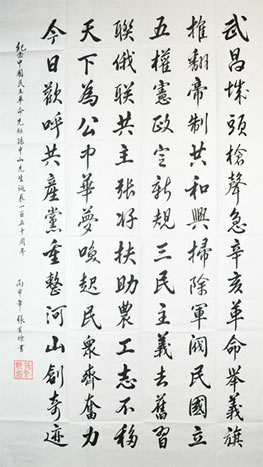 武昌城頭槍聲急辛亥革命舉義旗
推翻帝制共和興掃除軍閥民國立
五權憲政定新規三民主義去舊習
聯俄聯共主張好扶助農工志不移
天下為公中華夢喚起民眾齊奮力
今日歡呼共產黨重整河山創奇迹
紀念中國民主革命先行孫中山先生誕辰一百五十周年
丙申年 張書